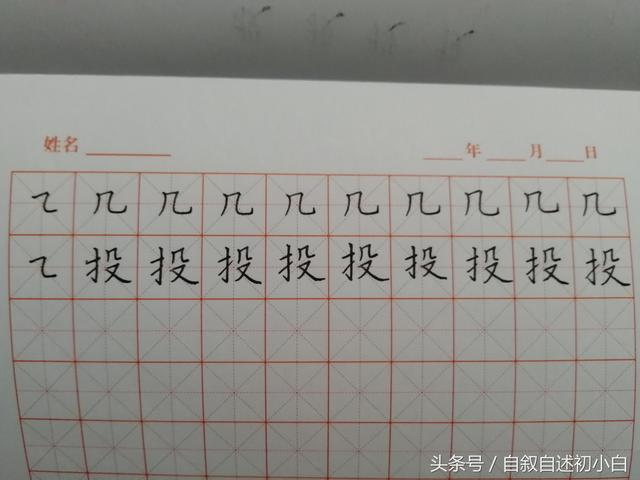 姓名 年 月 日
⺄ 几 几 几 几 几 几 几 几 几
⺄ 投 投 投 投 投 投 投 投 投
头条号 / 自叙自述初小白